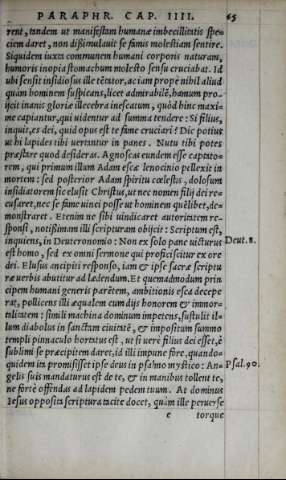 PARAPHR. CAP. IIII. 65
renit, tandem ut manifestam humanæ imbecillitatis spe-
ciem daret, non dißimulauit se famis molestiam sentire.
Siquidem iuxta communem humani corporis naturam,
humoris inopia stomachum molesto sensu cruciabat. Id
ubi sensit insidiosus ille tẽtator, ac iam prope nihil aliud
quàm hominem suspicans, licet admirabilẽ, hamum pro-
ijcit inanis gloriæ illecebra inescatum, quòd hinc maxi-
me capiantur, qui uidentur ad summa tendere: Si filius,
inquis, es dei, quid opus est te fame cruciari? Dic potius
ut hi lapides tibi uertantur in panes. Nutu tibi potes
præstare quod desideras. Agnoscas eundem esse captato-
rem, qui primum illum Adam escæ lenocinio pellexit in
mortem: sed posterior Adam spiritu cœlestus, dolosum
insidiatorem sic elusit Christus, ut nec nomen filij dei re-
cusaret, nec se fame uinci posse ut hominem quẽlibet, de-
monstraret. Etenim ne sibi uindicaret autoritatem re-
sponsi, notißimum illi scripturam obijcit: Scriptum est,
inquiens, in Deuteronomio: Non ex solo pane uicturus
Deut. 8.
est homo, sed ex omni sermone qui proficiscitur ex ore
dei. Elusus ancipiti responso, iam & ipse sacræ scriptu
ræ uerbis abutitur ad lædendum. Et quemadmodum prin
cipem humani generis parẽtem, ambitionis esca decepe
rat, pollicens illi æqualem cum dijs honorem & immor-
talitatem: simili machina dominum impetens, sustulit il-
lum diabolus in sanctam ciuitatẽ, & impositum summo
templi pinnaculo hortatus est, ut si uerè filius dei esset, è
sublimi se præcipitem daret, id illi impune fore, quando-
quidem ita promisisset ipse deus in psalmo mystico: An-
Psal. 90.
gelis suis mandaturus est de te, & in manibus tollent te,
ne fortè offendas ad lapidem pedem tuum. At dominus
Iesus opposita scriptura tacite docet, quàm ille peruerse
e torque